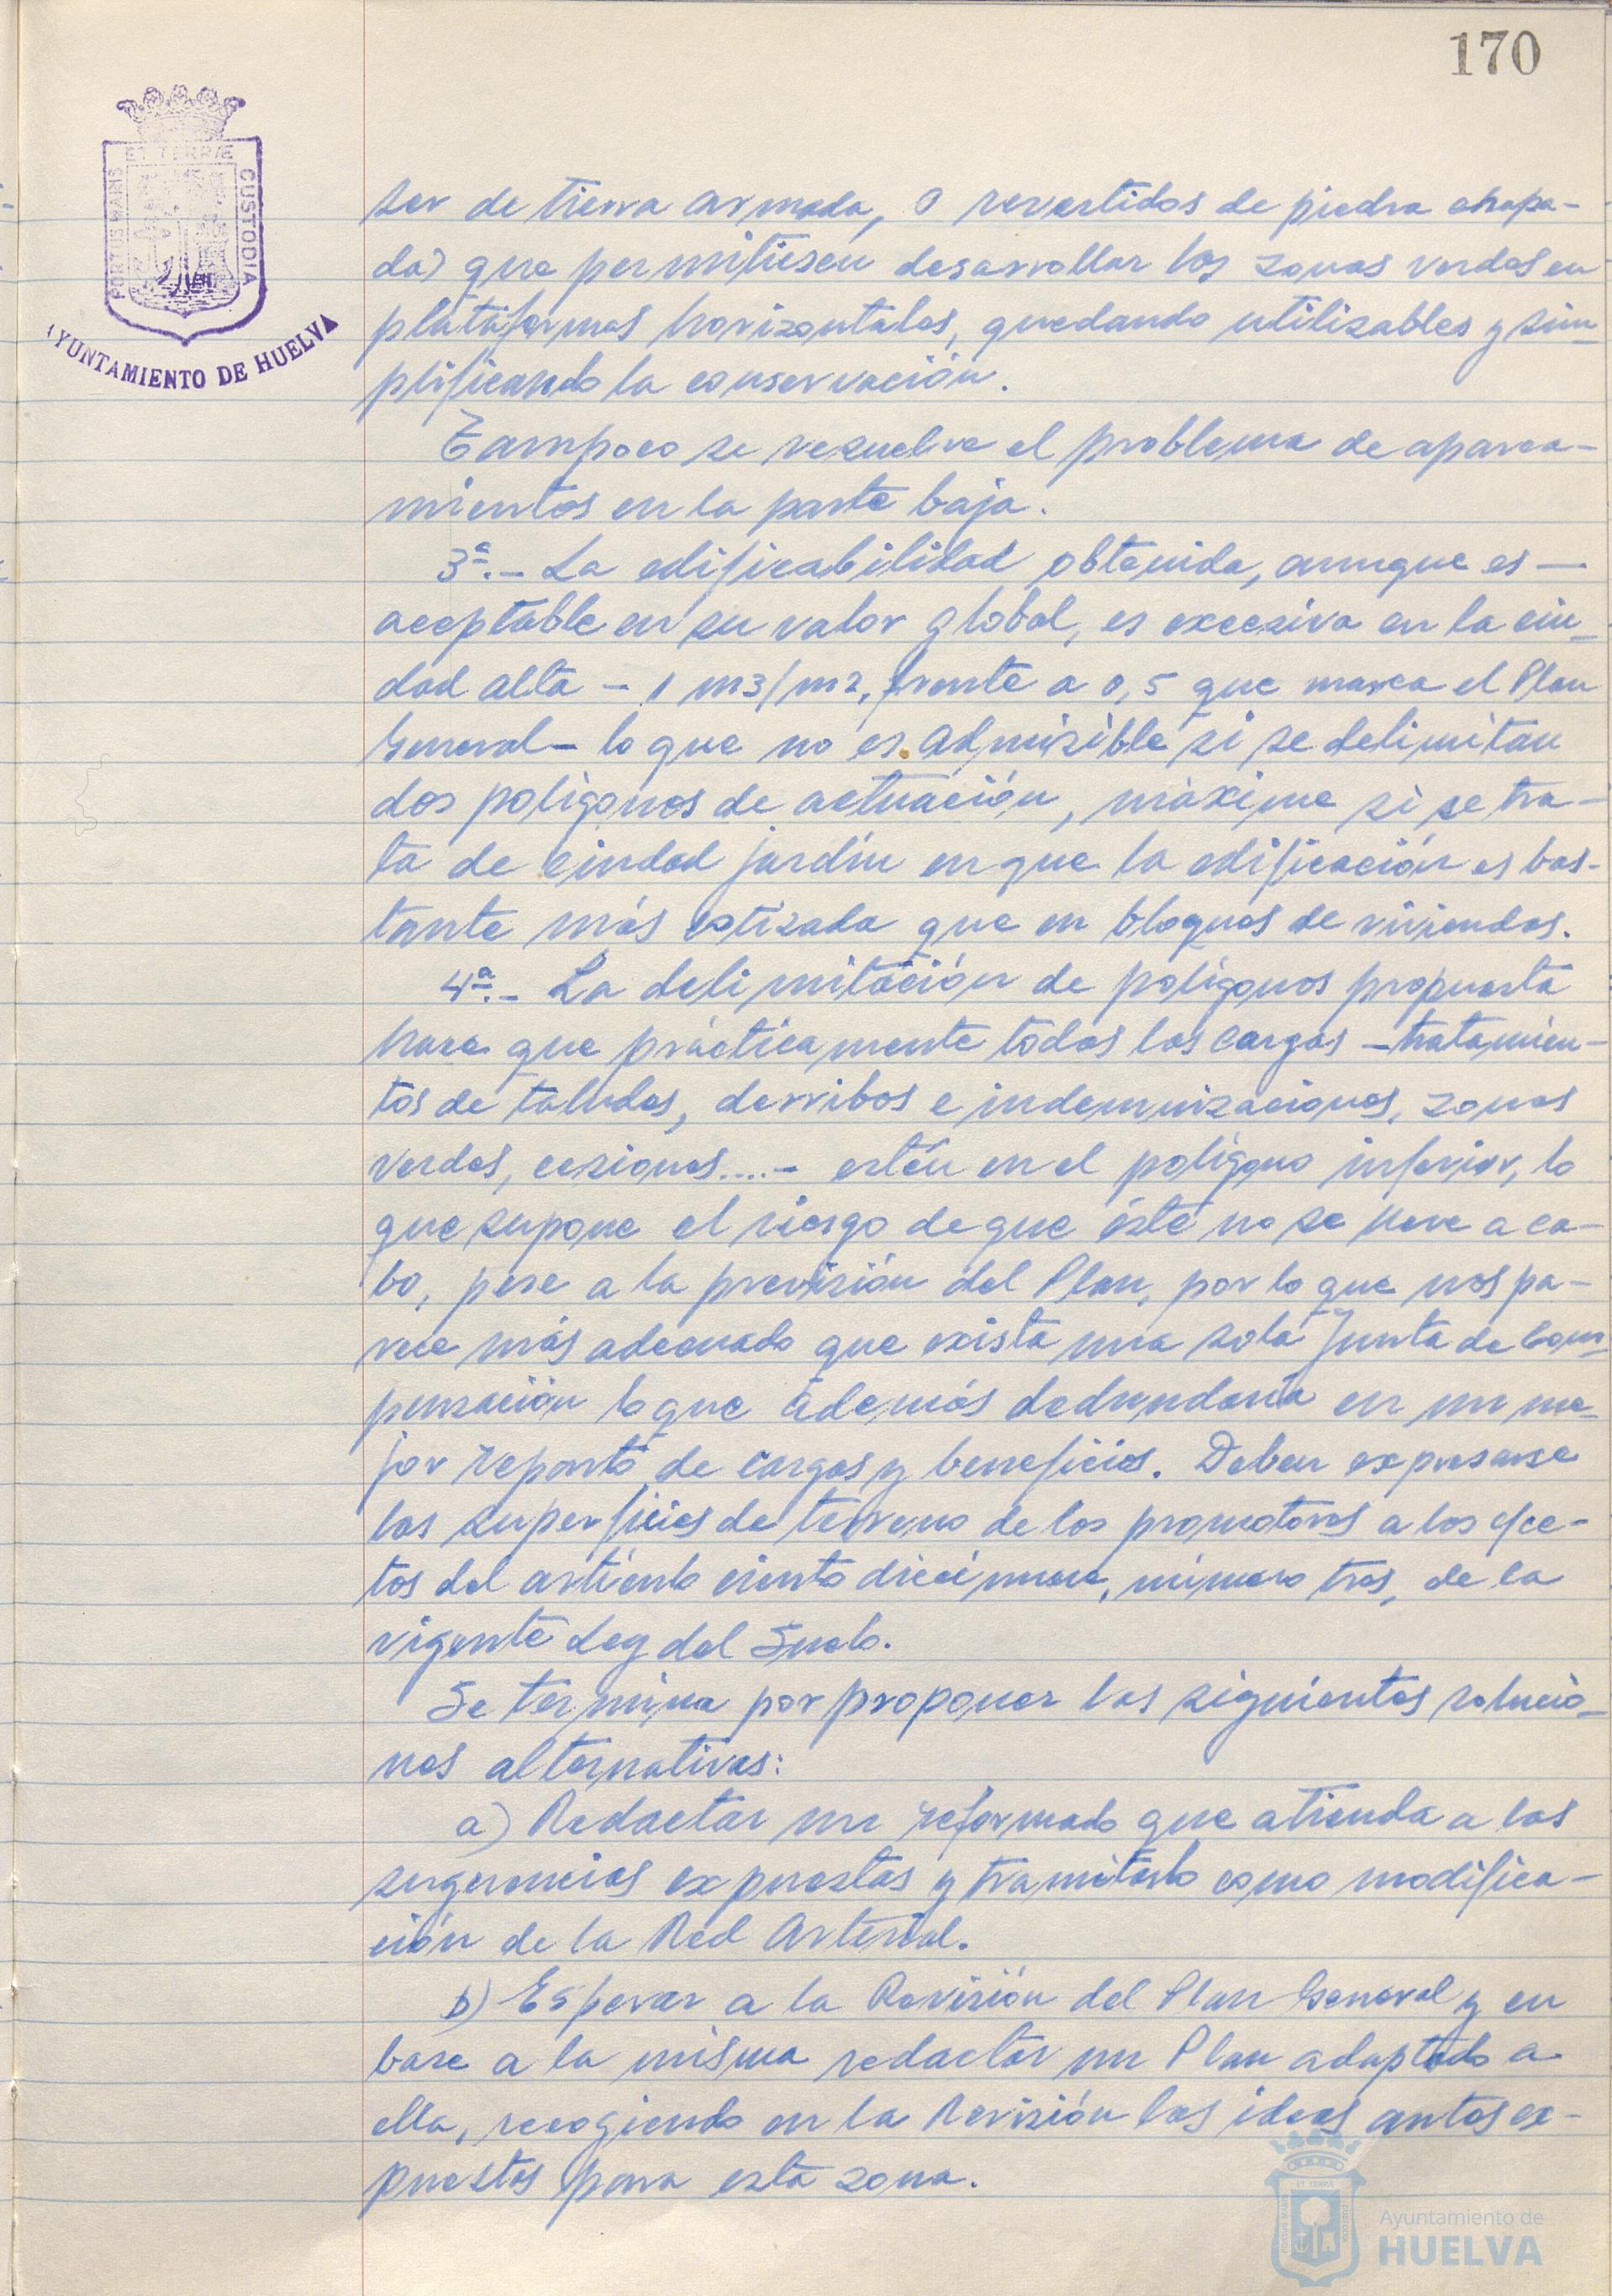 170
ET TERRÆ
PORTUS MARIS
CUSTODIA
AYUNTAMIENTO DE HUELVA
ser de tierra armada, o revestidos de piedra chapa-
da) que permitiesen desarrollar las zonas verdes en
plataformas horizontales, quedando utilizables y sim-
plificando la conservación.
Tampoco se resuelve el problema de aparca-
mientos en la parte baja.
3ª.- La edificabilidad obtenida, aunque es -
aceptable en su valor global, es excesiva en la ciu-
dad alta - 1 m3/m2, frente a 0,5 que marca el Plan
General - lo que no es admisible si se delimitan
dos polígonos de actuación, máxime si se tra-
ta de ciudad jardín en que la edificación es bas-
tante más cotizada que en bloques de viviendas.
4ª.- La delimitación de polígonos propuesta
hace que prácticamente todas las cargas - tratamien-
tos de taludes, derribos e indemnizaciones, zonas
verdes, cesiones....- estén en el polígono inferior, lo
que supone el riesgo de que éste no se lleve a ca-
bo, pese a la previsión del Plan, por lo que nos pa-
rece más adecuado que exista una sola Junta de Com-
pensación lo que además dedundaría en un me-
jor reparto de cargas y beneficios. Deben expresarse
las superficies de terreno de los promotores a los efec-
tos del artículo ciento diecinueve, número tres, de la
vigente Ley del Suelo.
Se termina por proponer las siguientes solucio-
nes alternativas:
a) Redactar un reformado que atienda a las
sugerencias expuestas y tramitarlo como modifica-
ción de la Red Arterial.
b) Esperar a la Revisión del Plan General y en
base a la misma redactar un Plan adaptado a
ella, recogiendo en la Revisión las ideas antes ex-
puestas para esta zona.
Ayuntamiento de
HUELVA